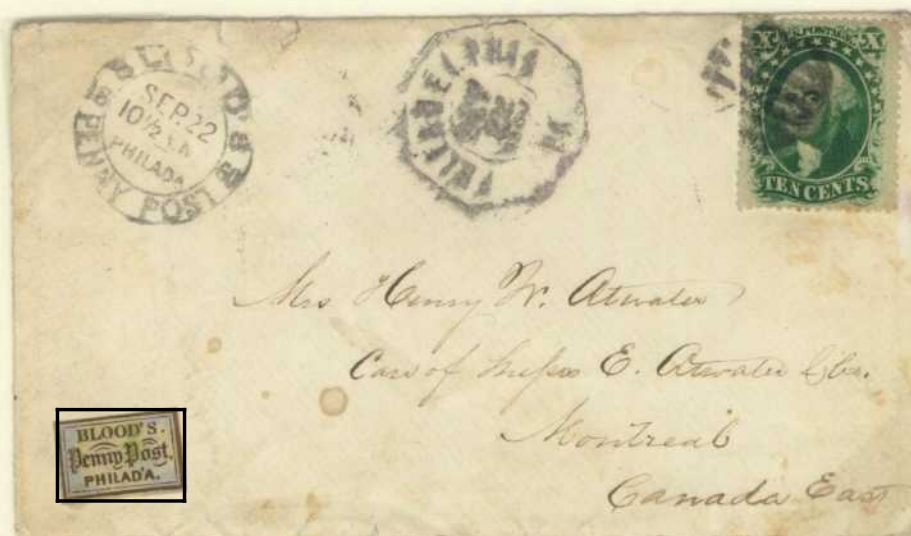 BLOOD'S
SEP. 22
10 ½ A.M
PHILADA
PENNY POST
PHILADELPHIA
PA
X U.S. POSTAGE X
TEN CENTS
Mrs Henry W. Atwater
Care of Messrs E. Atwater & Co.
Montreal
Canada East
BLOOD'S.
Penny Post.
PHILAD'A.